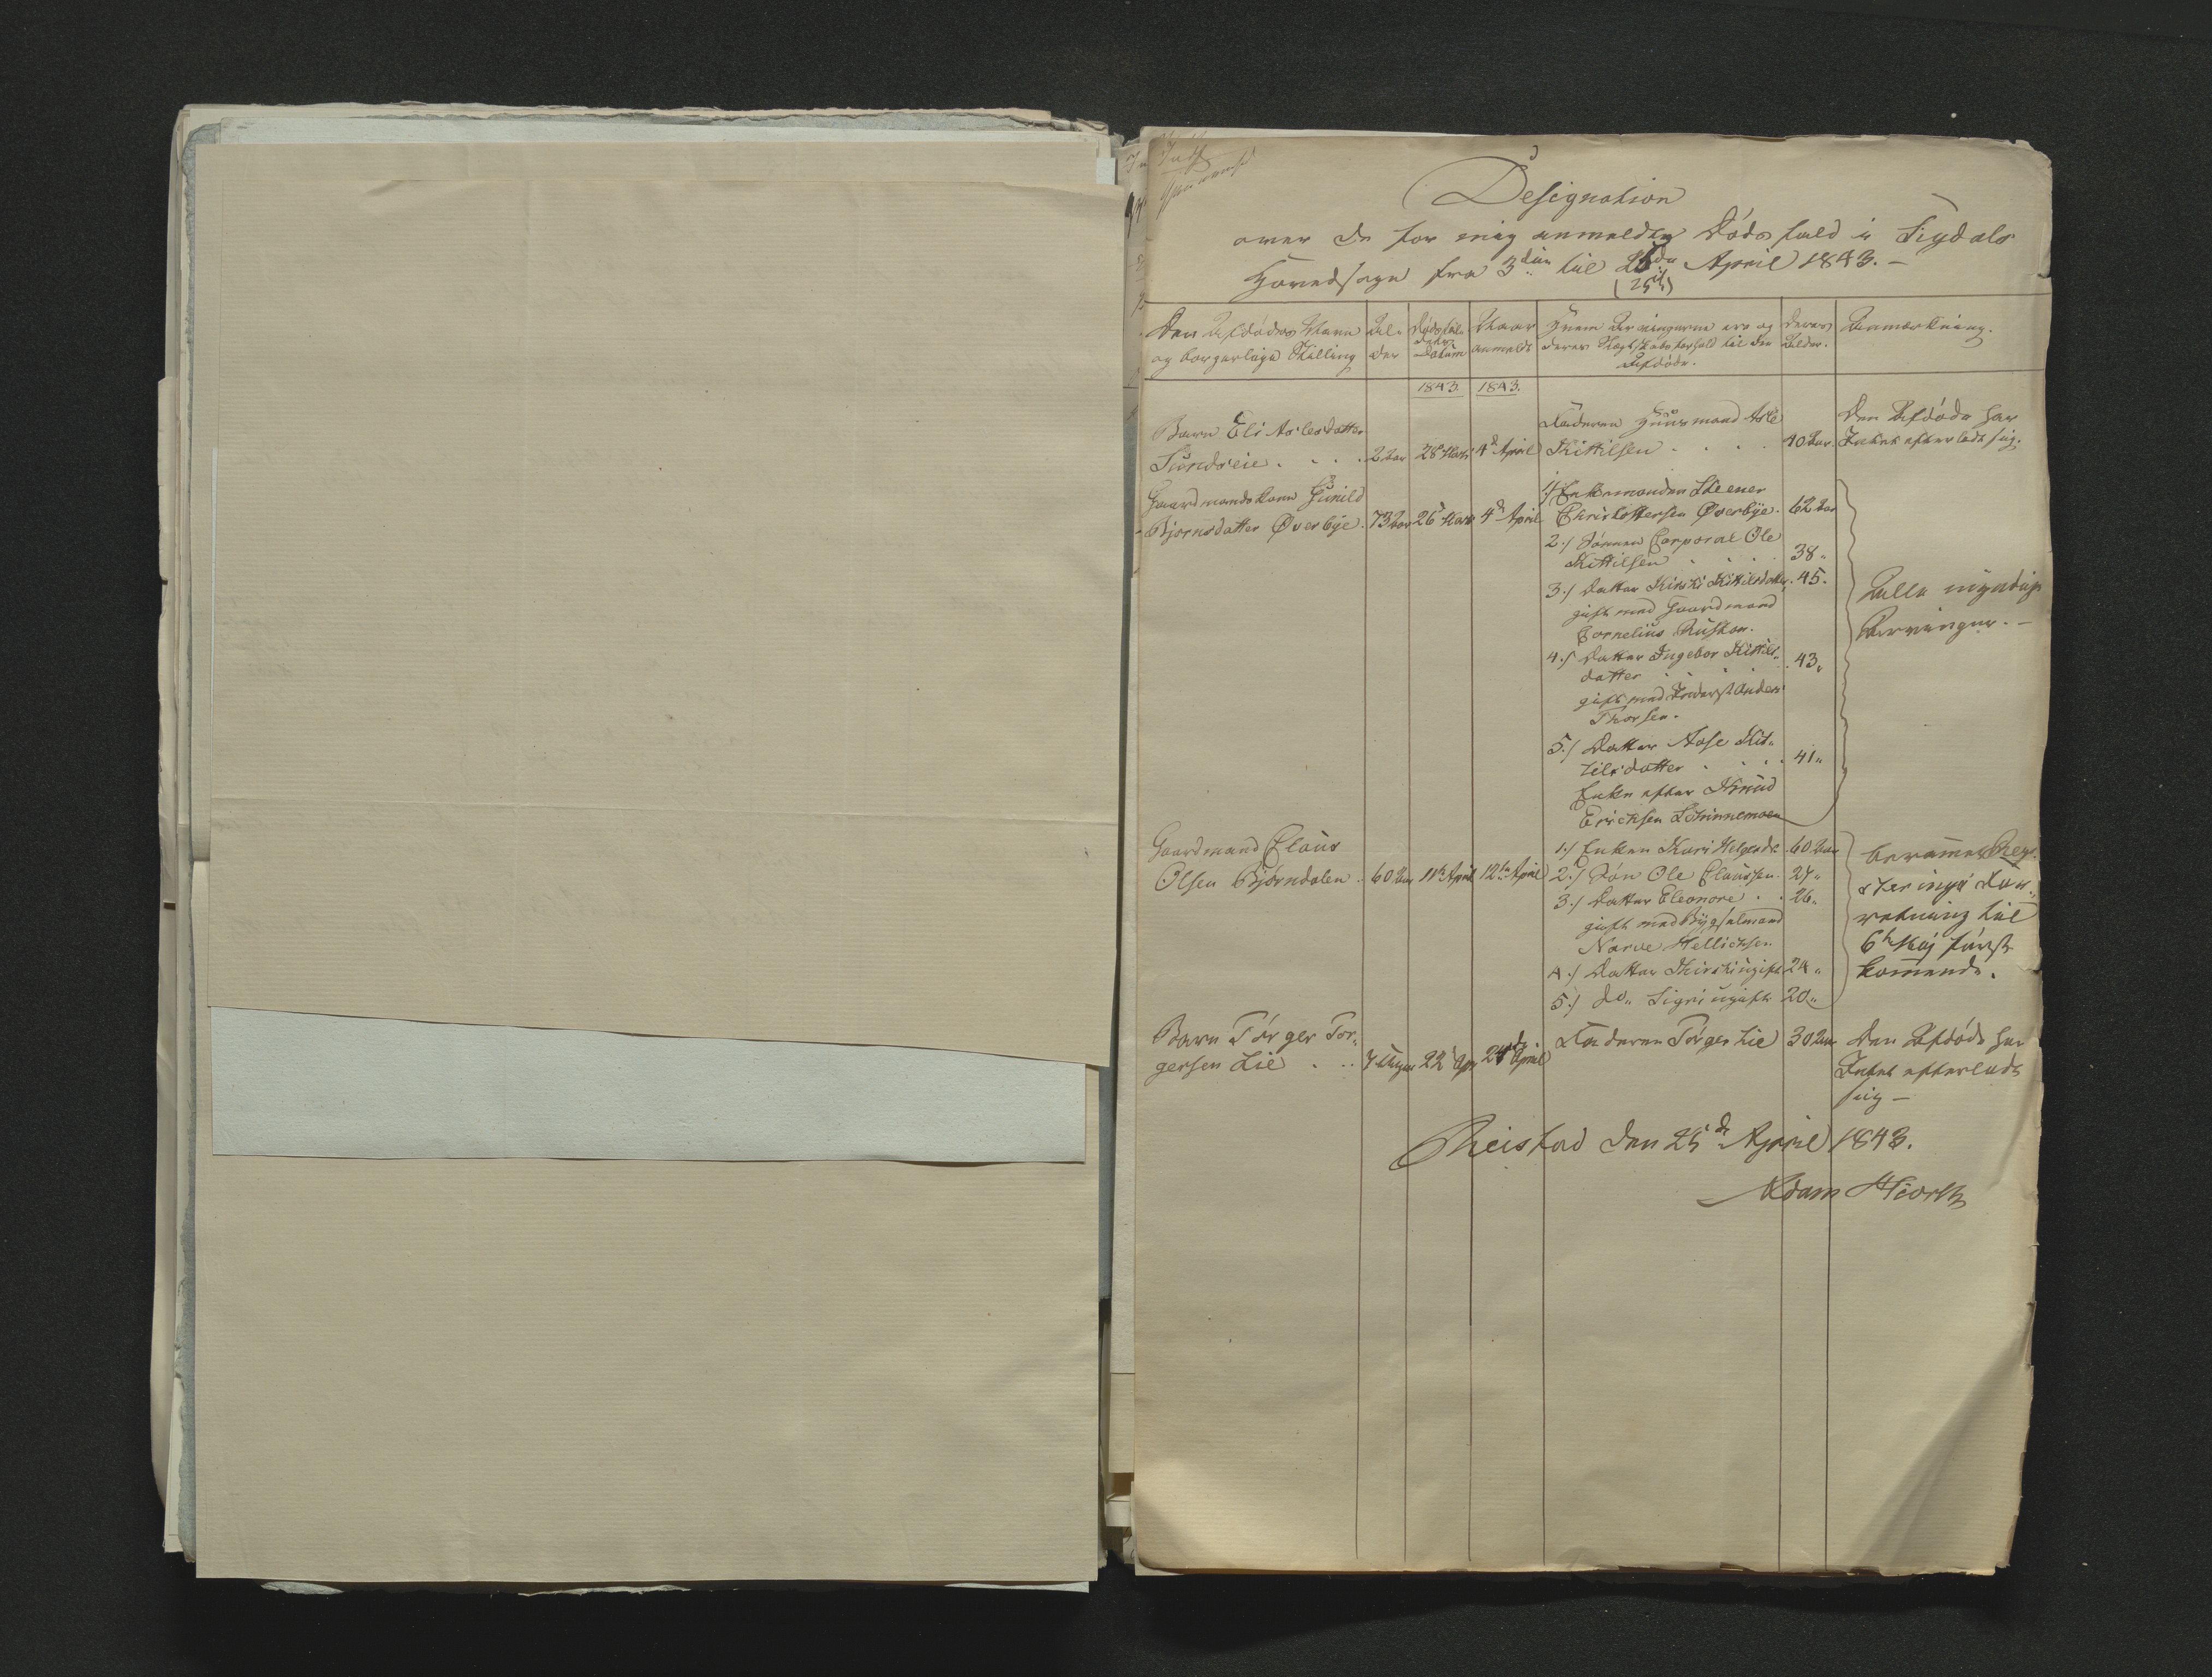 Designation
over de for mig anmeldte Dødsfald i Sigdals
Hovedsogn fra 3die til 26de April 1843.-
(25d)
Den Afdødes Navn
og borgerlige Stilling
Al-
der
Dødsfal-
dets
Datum
Naar
anmeldt
Hvem Arvingerne ere og
deres Slægtskabsforhold til den
Afdøde.
Deres
Alder.
Anmærkning.
1843.
1843.
Barn Eli Aslesdatter
Sundseie . . . .
2 Aar
28 Marts
4d April
Faderen Huusmand Asle
Kittilsen . . . .
40 Aar.
Den Afdøde har
Intet efterladt sig.
Gaardmandskone Gunild
Bjørnsdatter Øverbye.
73 Aar
26d Marts
4d April
1./ Enkemanden Steener
Christoffersen Øverbye.
62 Aar
2./ Sønnen Corporal Ole
Kittilsen . . .
38 "
3./ Datter Kirsti Kittilsdatter
45.
gift med Gaardmand
Cornelius Rustan.
4./ Datter Ingebor Kittils-
datter . . .
43 "
gift med Anders
Thorsen.
5./ Datter Aase Kit-
tilsdatter . . . .
41 "
Enke efter Knud
Erichsen
Alle myndige
Arvinger. -
Gaardmand Claus
Olsen Bjørndalen .
60 Aar
11te April
12te April
1./ Enken Kari Helgesdr.
60 Aar
2./ Søn Ole Claussen.
27 "
3./ Datter Eleonore . .
26 "
gift med Bygselmand
Narve Hellichsen
4./ Datter Kirsti ugift
24 "
5./ do. Sigri ugift
20 "
berammes Reg-
streringsfor-
retning til
6te Maj først-
kommende.
Barn Torger Tor-
gersen Lie . . .
7 Uger
22 Apr
24d April
Faderen Torger Lie
30 Aar
Den Afdøde har
Intet efterladt
sig -
Reistad den 25de April 1843.
Adam Hiorth